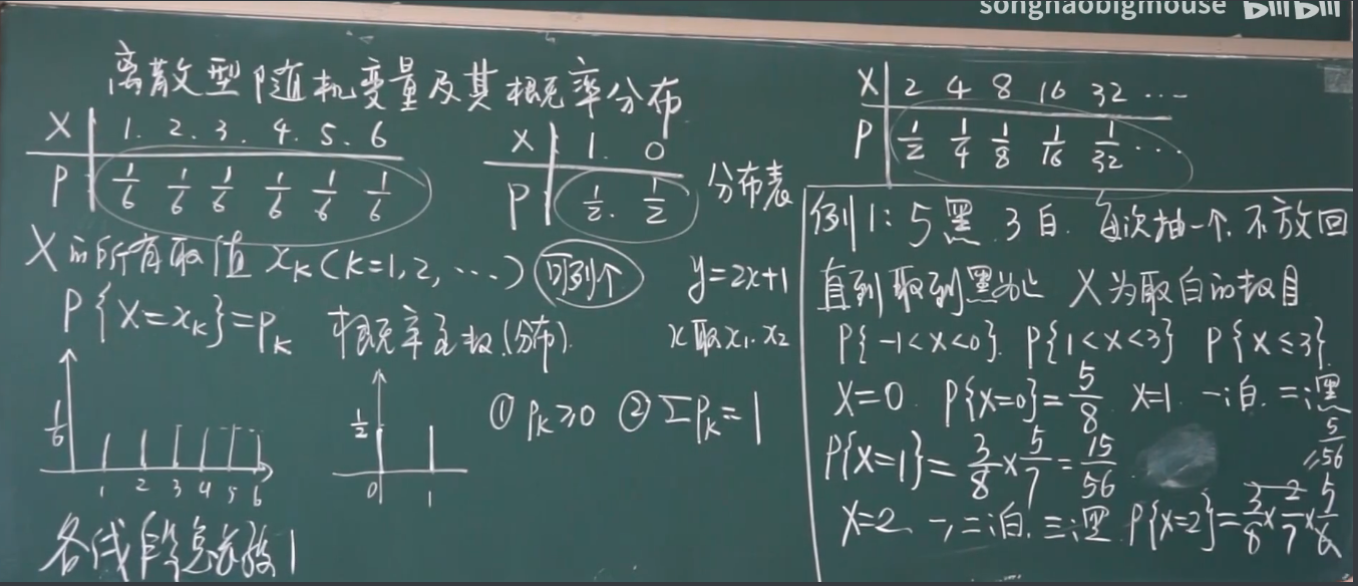 songhaobigmouse bilibili
离散型随机变量及其概率分布
X 1. 2. 3. 4. 5. 6
P 1/6 1/6 1/6 1/6 1/6 1/6
X 1. 0
P 1/2. 1/2
分布表
X的所有取值 x_K (K=1, 2, …) 可列个
P{X=x_K}=p_K 概率函数(分布)
y=2x+1
x取x_1. x_2
1/6
1 2 3 4 5 6
1/2
0 1
① p_K≥0 ② Σp_K=1
各线段总长度1
X 2 4 8 16 32 …
P 1/2 1/4 1/8 1/16 1/32 …
例1: 5黑. 3白. 每次抽一个. 不放回
直到取到黑为止 X为取白的数目
P{-1<X<0}. P{1<X<3} P{X≤3}.
X=0. P{X=0}=5/8. X=1. 一次白. 二次黑
P{X=1}=3/8×5/7=15/56
5/56
X=2. 一、二次白. 三次黑. P{X=2}=3/8×2/7×5/6